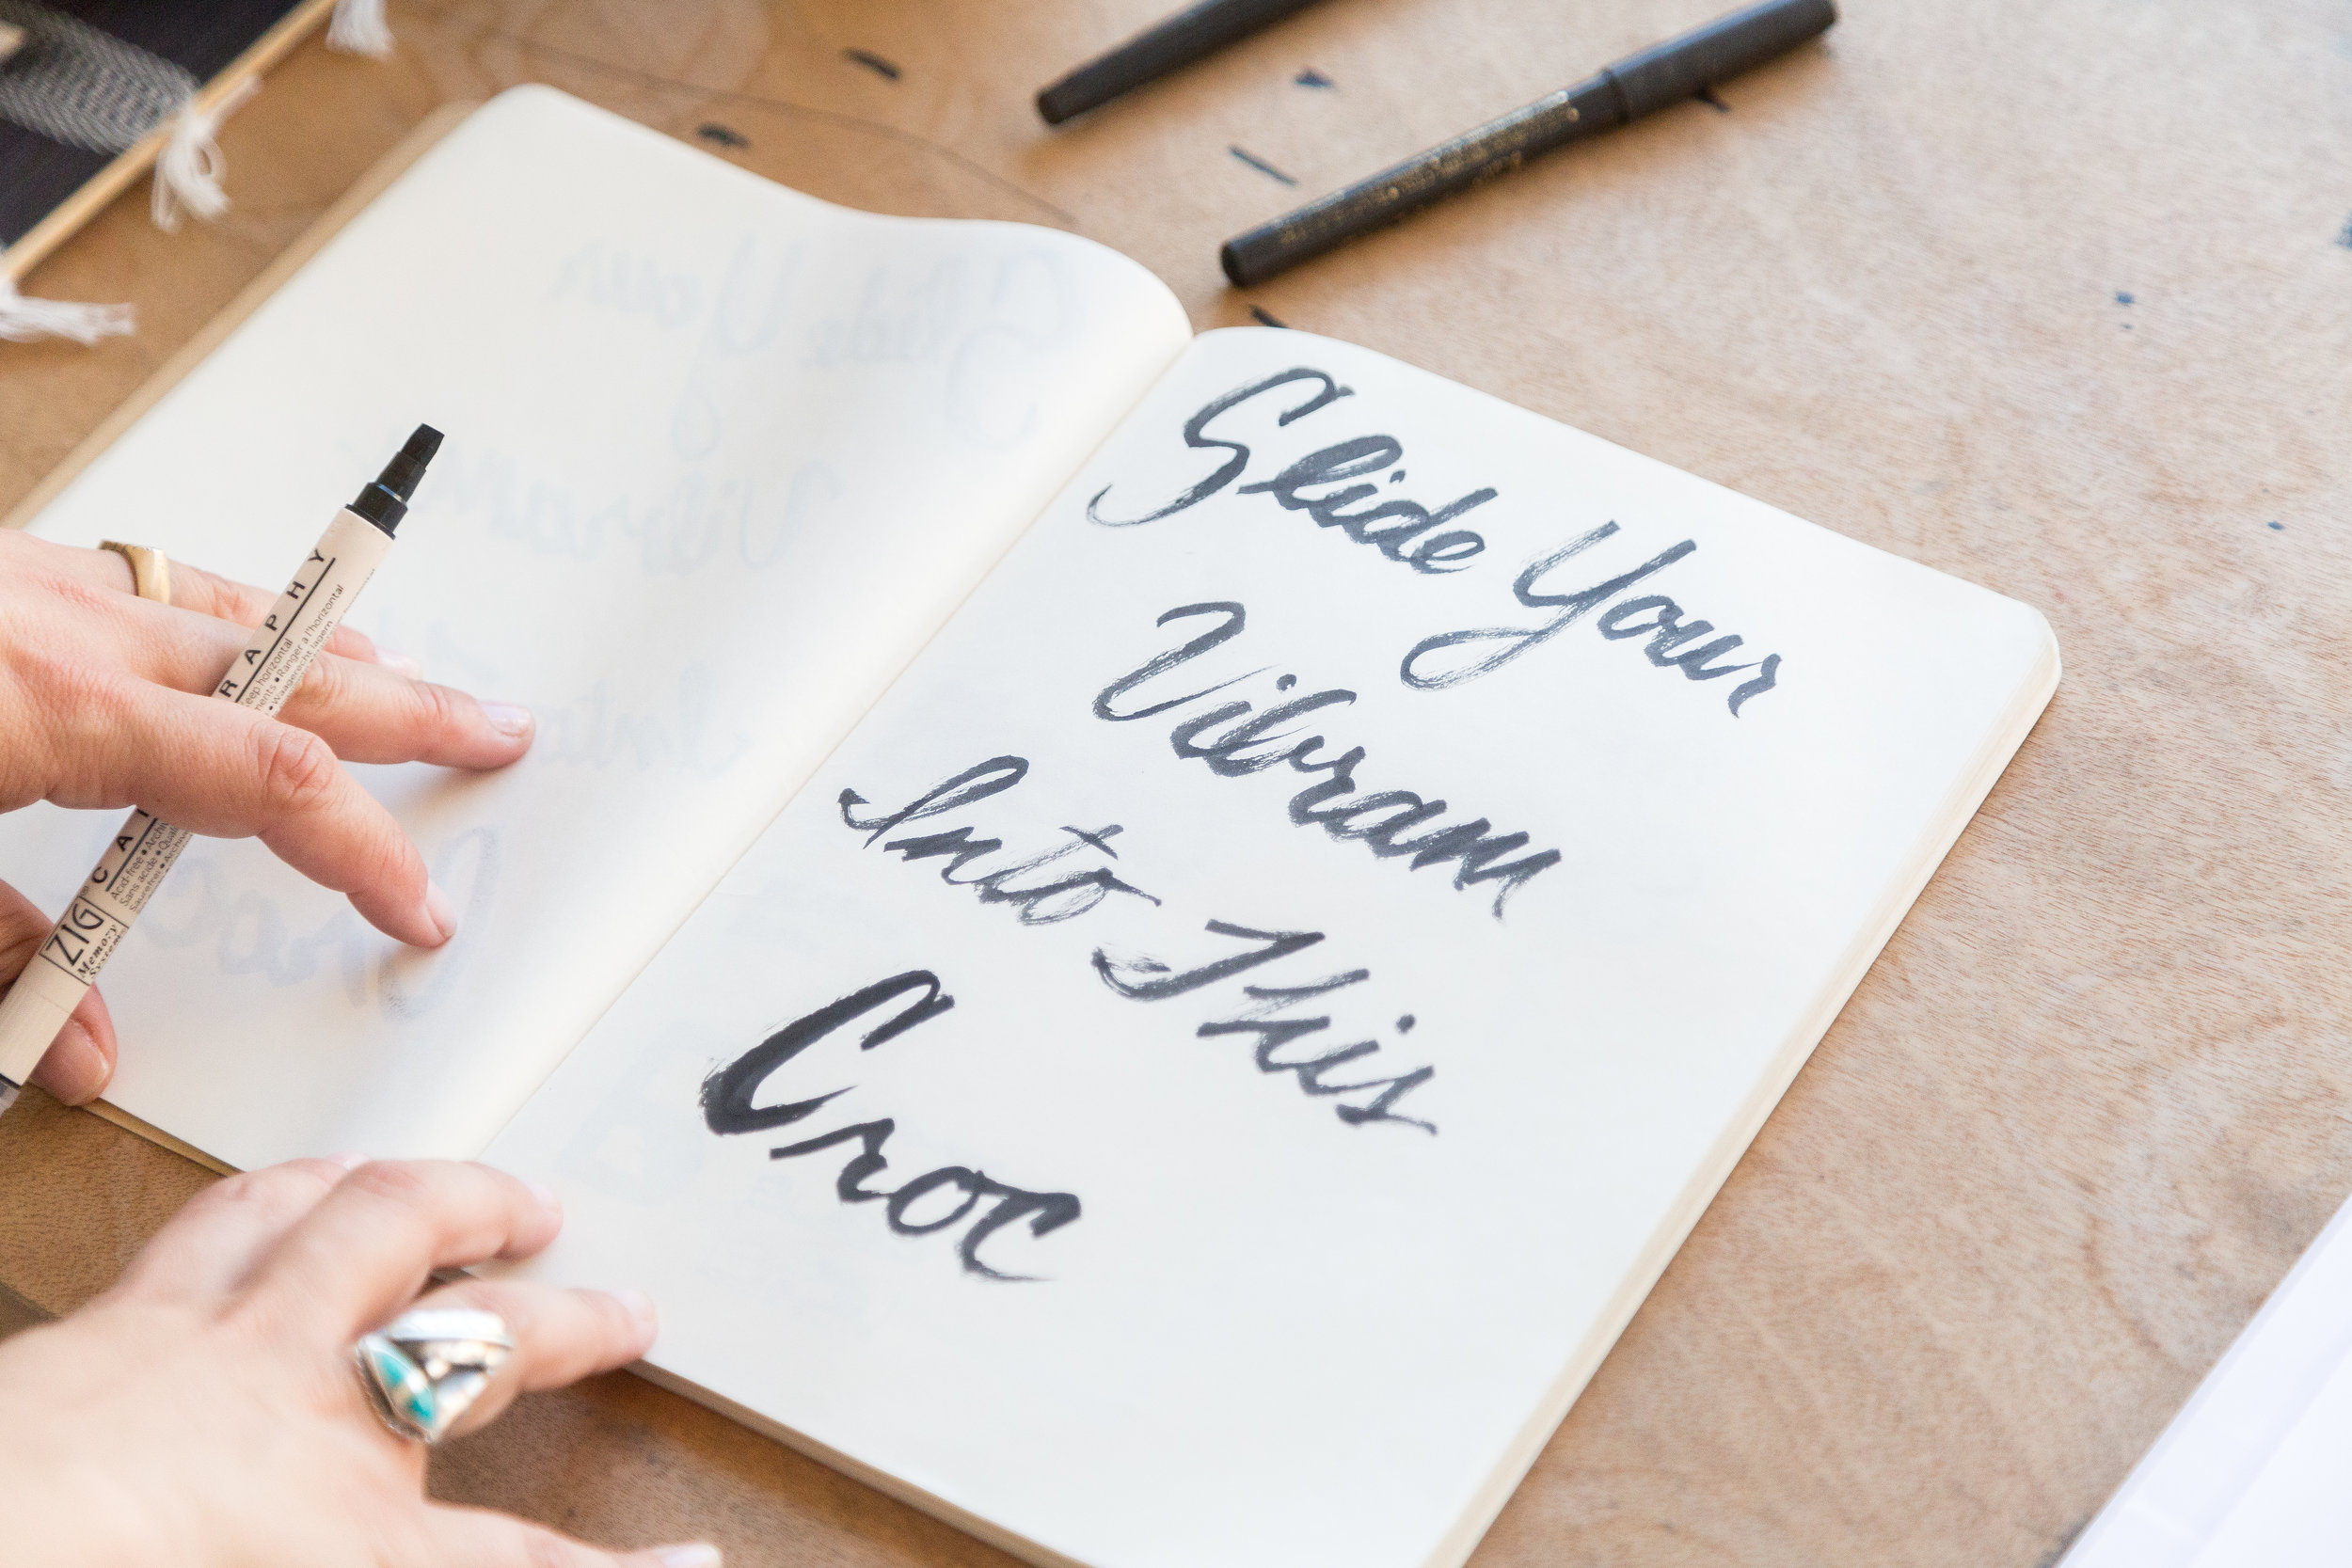 Slide Your
Vibram
Into This
Croc
ZIG
Memory
System
CA
RAPHY